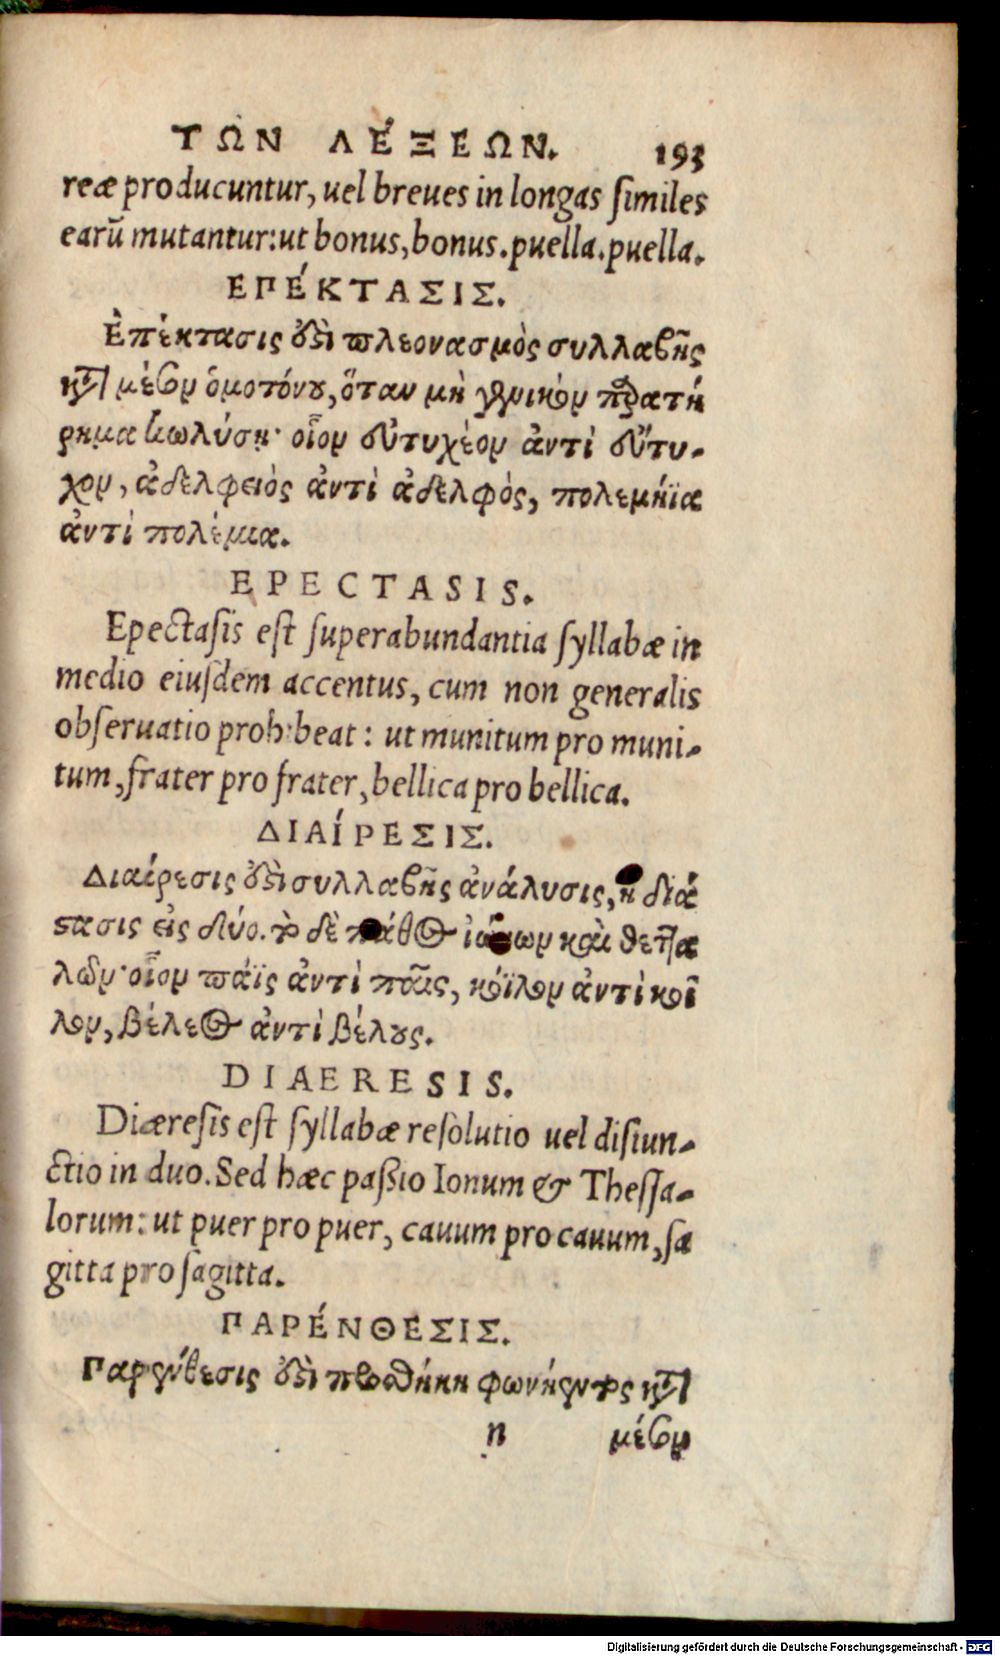 ΤΩΝ ΛΈΞΕΩΝ. 193
reæ producuntur, uel breues in longas ſimiles
earũ mutantur: ut bonus, bonus. puella. puella.
ΕΠΈΚΤΑΣΙΣ.
Ἐπέκτασις ὅβι πλεονασμὸς συλλαβῆς
κτ μέσον ὁμοτόνου, ὅταν μὴ γενικὸν παρατή
ρημα κωλύσῃ· οἷον εὐτυχέον ἀντὶ εὔτυ-
χον, ἀδελφειὸς ἀντὶ ἀδελφὸς, πολεμήϊα
ἀντὶ πολέμια.
EPECTASIS.
Epectaſis eſt ſuperabundantia ſyllabæ in
medio eiuſdem accentus, cum non generalis
obſeruatio prohibeat: ut munitum pro muni-
tum, frater pro frater, bellica pro bellica.
ΔΙΑΊΡΕΣΙΣ.
Διαίρεσις ὅβι συλλαβῆς ἀνάλυσις, ἢ διά
στασις εἰς δύο. τὸ δὲ πάθος ἰώνων καὶ θεττα
λῶν· οἷον πάϊς ἀντὶ παῖς, κόϊλον ἀντὶ κοῖ
λον, βέλεος ἀντὶ βέλους.
DIAERESIS.
Diæreſis eſt ſyllabæ reſolutio uel diſiun-
ctio in duo. Sed hæc paſsio Ionum & Theſſa-
lorum: ut puer pro puer, cauum pro cauum, ſa
gitta pro ſagitta.
ΠΑΡΈΝΘΕΣΙΣ.
Παρένθεσις ὅβι προσθήκη φωνήεντος κτ
n μέσον
Digitalisierung gefördert durch die Deutsche Forschungsgemeinschaft - DFG